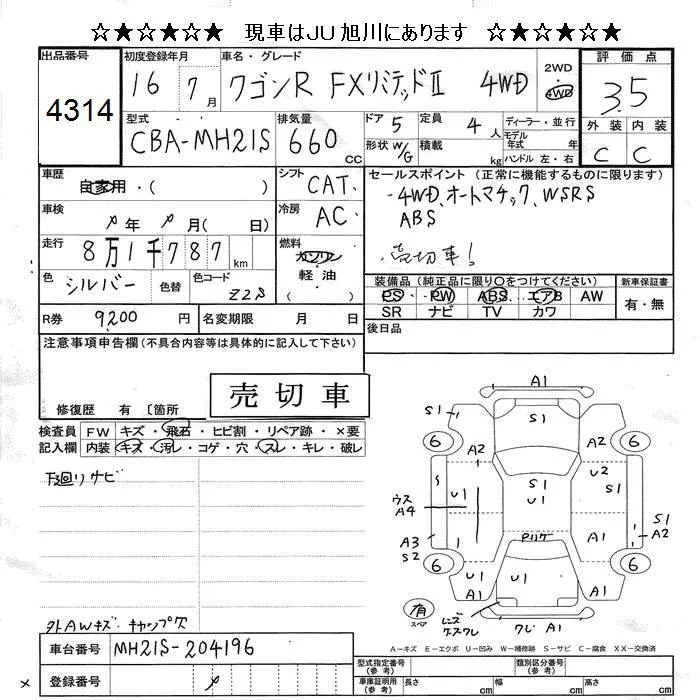 ☆★☆★☆★☆ 現車はJU旭川にあります ☆★☆★☆★☆
出品番号 4314
初度登録年月 16 7月
車名・グレード ワゴンR FXリミテッドII 4WD
2WD 4WD
評価点 3.5
外装 C 内装 C
型式 CBA-MH21S
排気量 660 CC
ドア 5 定員 4人
形状 W/G 積載 kg
ディーラー・並行
モデル年式 年式
ハンドル 左・右
車歴 自家用・( )
シフト CAT.
セールスポイント (正常に機能するものに限ります)
4WD、オートマチック、WSRS
ABS
売切車!
車検 年 月( 日)
冷房 AC
走行 8万1千787 km
燃料 ガソリン・軽油
色 シルバー 色替 色コード Z2S
装備品 (純正品に限り○をつけてください) 新車保証書
PS PW ABS エアB AW 有・無
SR ナビ TV カワ
R券 9200 円 名変期限 月 日
後日品
注意事項申告欄(不具合内容等は具体的に記入して下さい)
売切車
修復歴 有 〔箇所
検査員記入欄 FW キズ・飛石・ヒビ割・リペア跡・×要
内装 キズ・汚レ・コゲ・穴・スレ・キレ・破レ
下廻りサビ
A1
S1 S1
6 A2 A2 6
U2
S1 S1
U1 U1
ウス A4
S1
A3 A1 A2
S2
6 U1 U1 A1 6
A1 A1
有 スペア
ワレ A1
外AWキズ キャップ欠
A-キズ E-エクボ U-凹み W-補修跡 S-サビ C-腐食 XX-交換済
車台番号 MH21S-204196
登録番号
型式指定番号(参考) 類別区分番号(参考)
車庫証明用(参考) 長さ cm 幅 cm 高さ cm